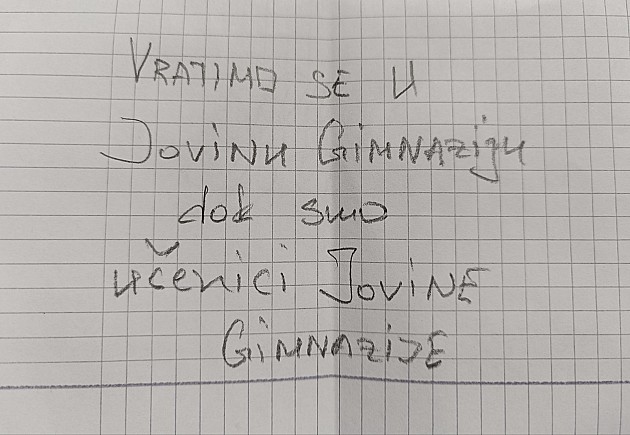 VRATIMO SE U
JOVINU GiMNAZiju
dok smo
učenici JOViNE
GiMNAZiJE